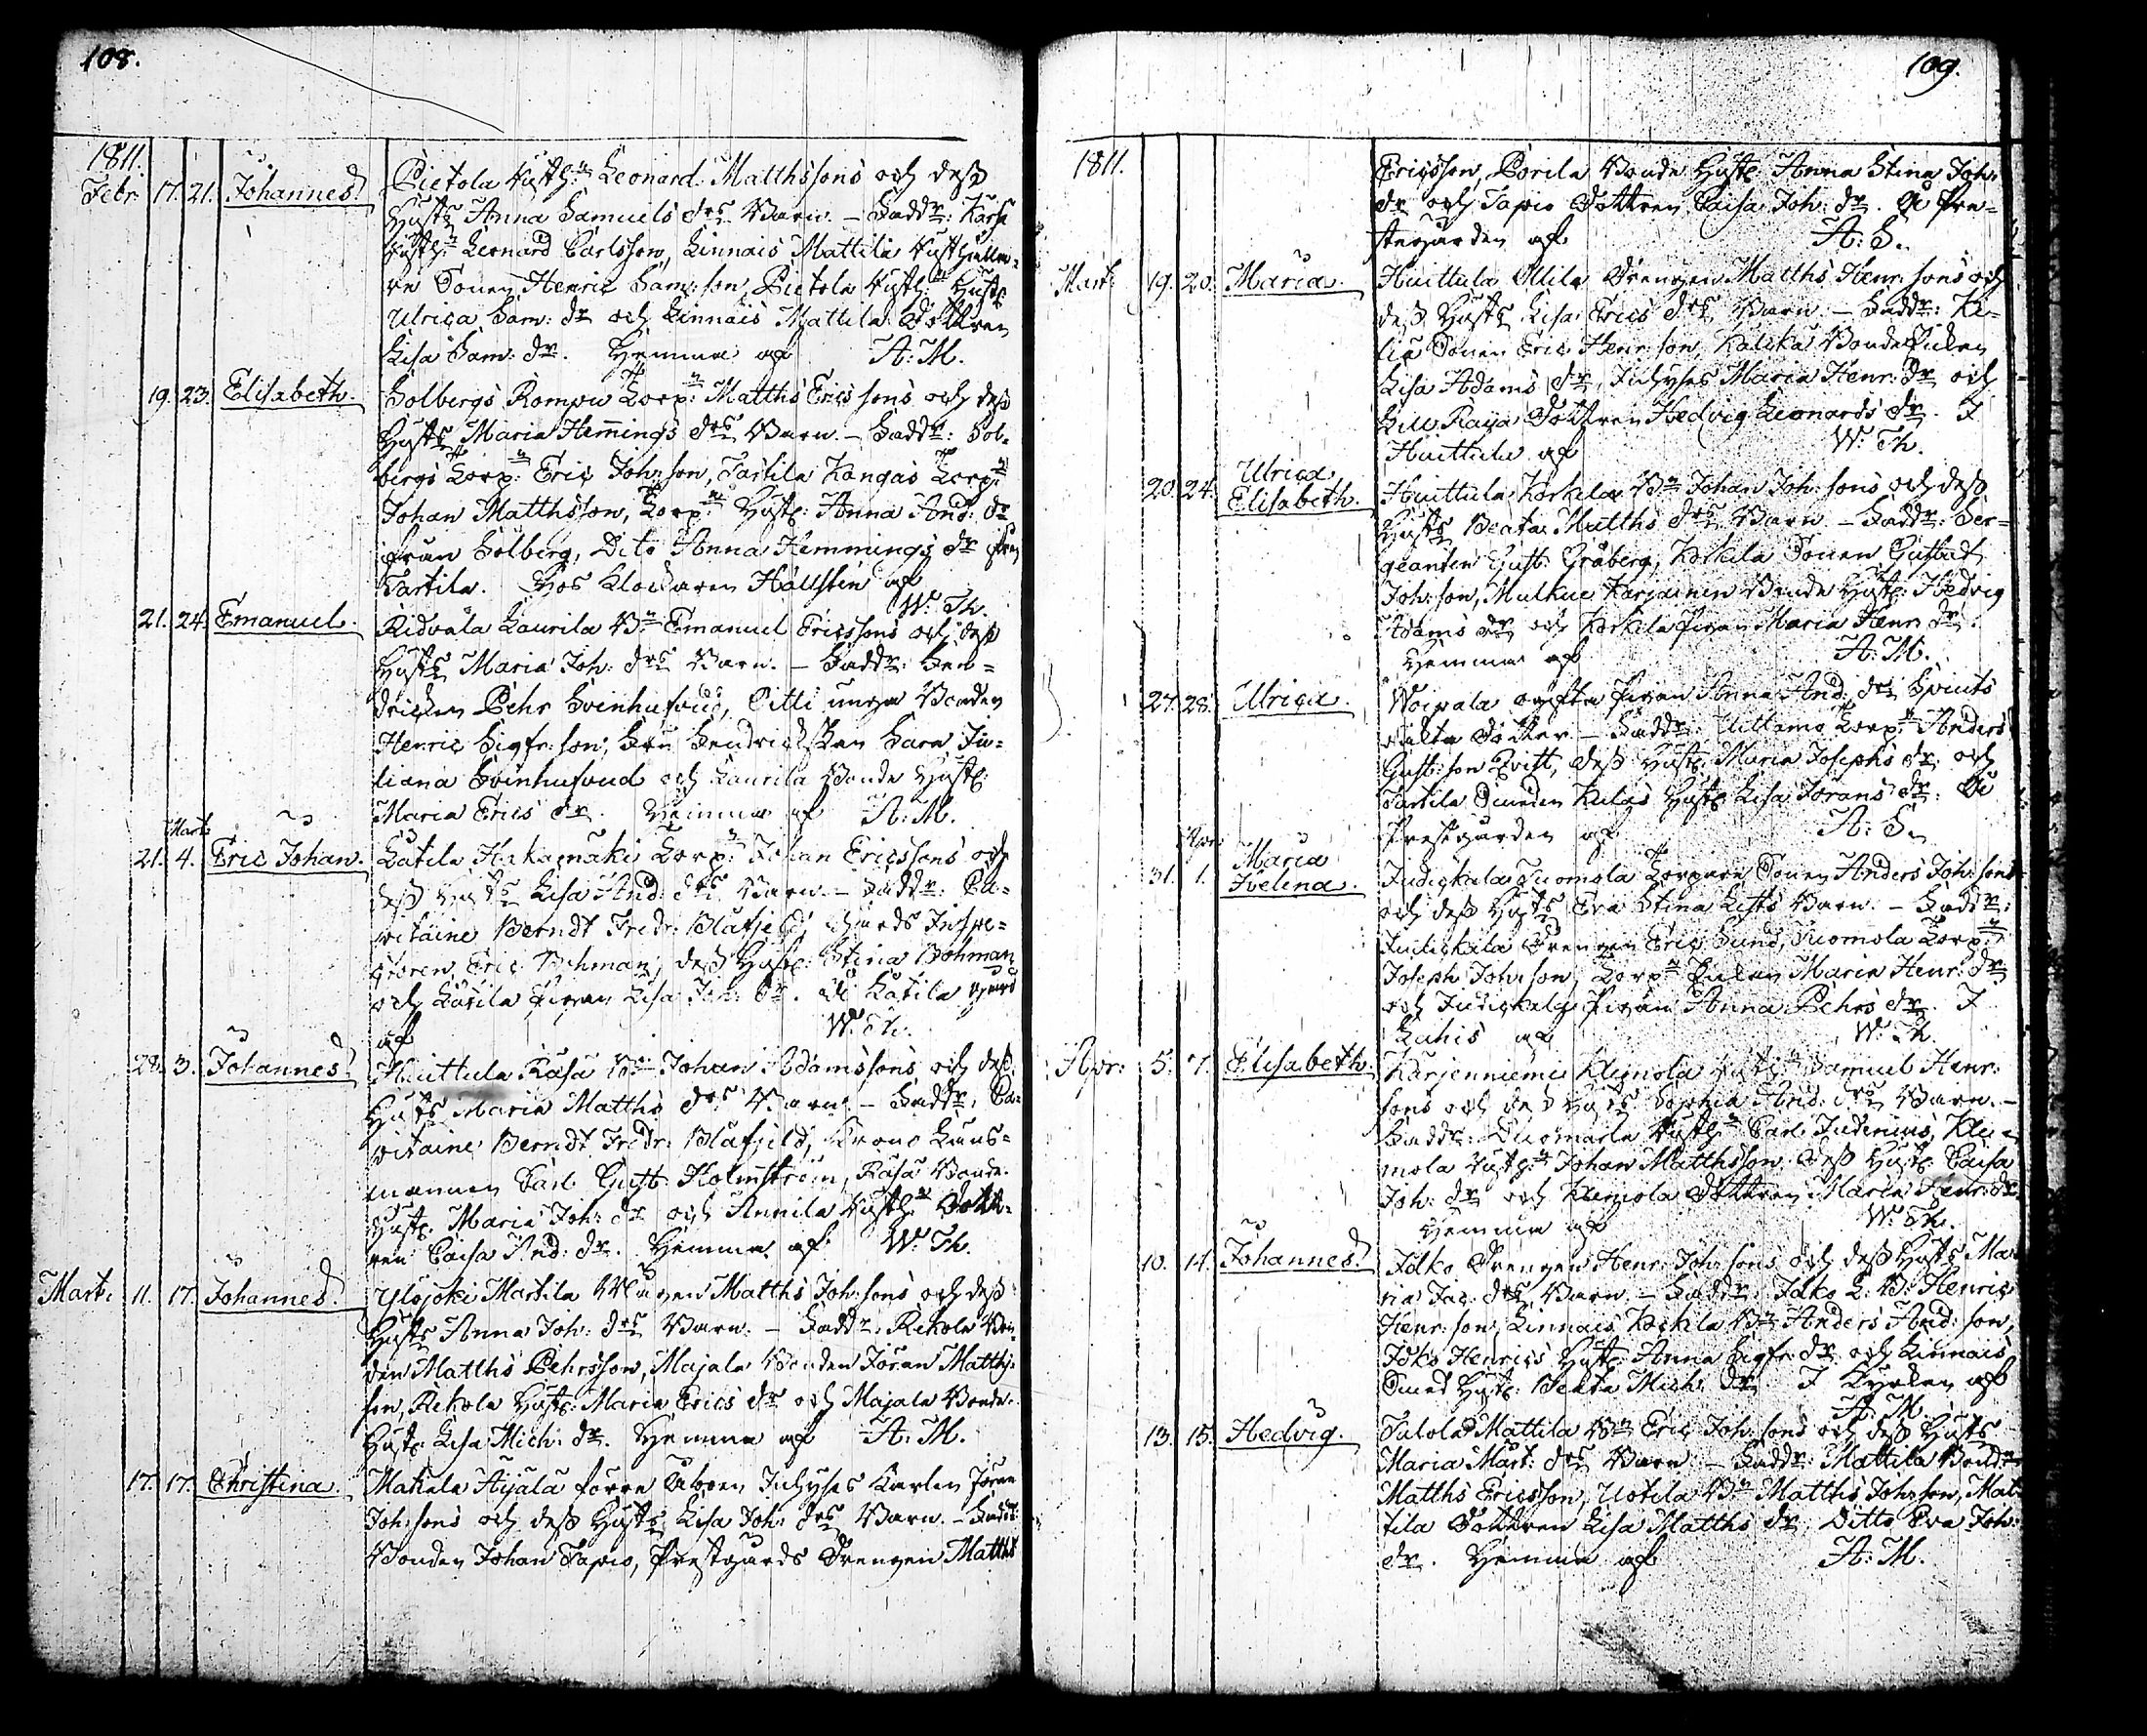 108.
1811.
Febr. 17. 21. Johannes. Pietola Rusth:n Leonard Matthssons och dess
Hustrs Anna Samuels drs Barn. – Faddr:
Rusth:n Leonard Carlsson, Linnais Mattila Rusthålla-
re Sonen Henric Sam: son, Pietola Rusth:n Hustr
Ulrica Sam: dr och Linnais Mattila Dottren
Lisa Sam: dr. Hemma af A: M.
19. 23. Elisabeth. Solbergs Rompu Torp:n Matths Erics sons och dess
Hustrs Maria Hem̄ings drs Barn. – Faddr: Sol-
bergs Torp:n Eric Joh: son, Tartila Kangas Torp:n
Johan Matthsson, Torp:n Hustr: Anna And: dr
från Solberg, Dito Anna Hemmings dr från
Tartila. Hos Klockaren Hallstin af
W: Th.
21. 24. Emanuel. Ridvala Laurila B:n Emanuel Ericssons och dess
Hustrs Maria Joh: drs Barn. – Faddr: Fen-
dricken Pehr Svinhufvud, Pitti unga Bonden
Henric Sigfr: son, Fru Fendrickskan Sara Ju-
liana Svinhufvud och Laurila Bonde Hustr:
Maria Erics dr. Hemma af A: M.
Mart:
21. 4. Eric Johan. Låtila Hakamäki Torp:n Johan Ericssons och
dess Hustrs Lisa And: drs Barn. – Faddr: Ca-
pitaine Berndt Fredr: Blåfjeld, Gårds Inspe-
ctoren Eric Bohman, dess Hustr: Stina Bohman
och Låtila Pigan Lisa Joh: dr. På Låtila gård
af W: Th.
28. 3. Johannes. Huittula Rasa B:n Johan Adamssons och dess
Hustrs Maria Matths drs Barn. – Faddr: Ca-
pitaine Berndt Fredr: Blåfjeld, Krono Läns-
mannen Carl Gust: Holmström, Rasa Bonde
Hustr: Maria Joh: dr och Annila Rusth:n Dott-
ren Caisa And: dr. Hemma af W: Th.
Mart: 11. 17. Johannes. Ylöjoki Martila Mågen Matths Joh: sons och dess
Hustrs Anna Joh: drs Barn. – Faddr: Rekola Bon-
den Matths Pehrsson, Majala Bonden Jöran Matths-
son, Rekola Hustr: Maria Erics dr och Majala Bonde
Hustr: Lisa Mich: dr. Hemma af A: M.
17. 17. Christina. Makala Äijälä förre Åboen Inhyses Karlen Jöran
Joh: sons och dess Hustrs Lisa Joh: drs Barn. – Faddr:
Bonden Johan Tapio, Prestgårds Drengen Matths
109.
1811. Ericsson, Porila Bonde Hustr: Anna Stina Joh:
dr och Tapio Dottren Caisa Joh: dr. På Pre-
stegården af A: S.
Mart: 19. 20. Maria. Huittula Ollila Drengen Matths Henr: sons och
dess Hustrs Lisa Erics drs Barn. – Faddr: Ki-
lia Sonen Eric Henr: son, Kalcka Bonde Pickan
Lisa Adams dr, Inhyses Maria Henr: dr och
Dottren Hedvig Leonards dr. I
Huittula af W: Th.
20. 24. Ulrica
Elisabeth. Huittula Korkila B:n Johan Joh: sons och dess
Hustrs Beata Matths drs Barn. – Faddr: Ser-
geanten Gust: Gråberg, Korkila Sonen Gustaf
Joh: son, Mulkue Karjainen Bonde Hustr: Hedvig
Adams dr och Korkila Pigan Maria Henr: dr.
Hemma af A: M.
27. 28. Ulrica. Woipala ogifta Pigan Anna And: drs Spints
oäkta Dotter. – Faddr: Uittamo Torp:n Anders
Gust: son Qvist, dess Hustr: Maria Josephs dr och
Tartila Smeden Hustr: Lisa Jörans dr: På
Prestgården af A: S.
Apr:
31. 1. Maria
Helena. Judickala Tuomola Torpare Sonen Anders Joh: sons
och dess Hustrs Eva Stina Lifts Barn. – Faddr:
Judickala Drengen Eric Sund, Tuomola Torp:n
Joseph Joh: son, Torp:n Pickan Maria Henr: dr
och Judickala Pigan Anna Pehrs dr. I
Lahis af W: Th.
Apr: 5. 7. Elisabeth. Karjenniemi Klemola Rusth:n Samuel Henr:
sons och dess Hustrs Sophia And: drs Barn. –
Faddr: Rusth:n Carl Juvenius, Kle-
mola Rusth:n Johan Matthsson, dess Hustr: Caisa
Joh: dr och Klemola Dottren Maria Henr: dr.
Hemma af W: Th.
10. 14. Johannes. Jdko Drengen Henr: Joh: sons och dess Hustrs Ma-
ria Jac: drs Barn. – Faddr: Jdko L: B: Henric
Henr: son, Linnais Kokila B:n Anders And: son,
Jdko Henrics Hustr: Anna Sigfr: dr och Linnais
Smed Hustr: Beata Mich: dr. I Kyrckan af
A: M.
13. 15. Hedvig. Talola Mattila B:n Eric Joh: sons och dess Hustrs
Maria Mårt: drs Barn – Faddr: Mattila Bonden
Matths Ericsson, Uotila B:n Matths Joh: son, Mat-
tila Dottren Lisa Matths dr, Ditto Eva Joh:
dr. Hemma af A: M.